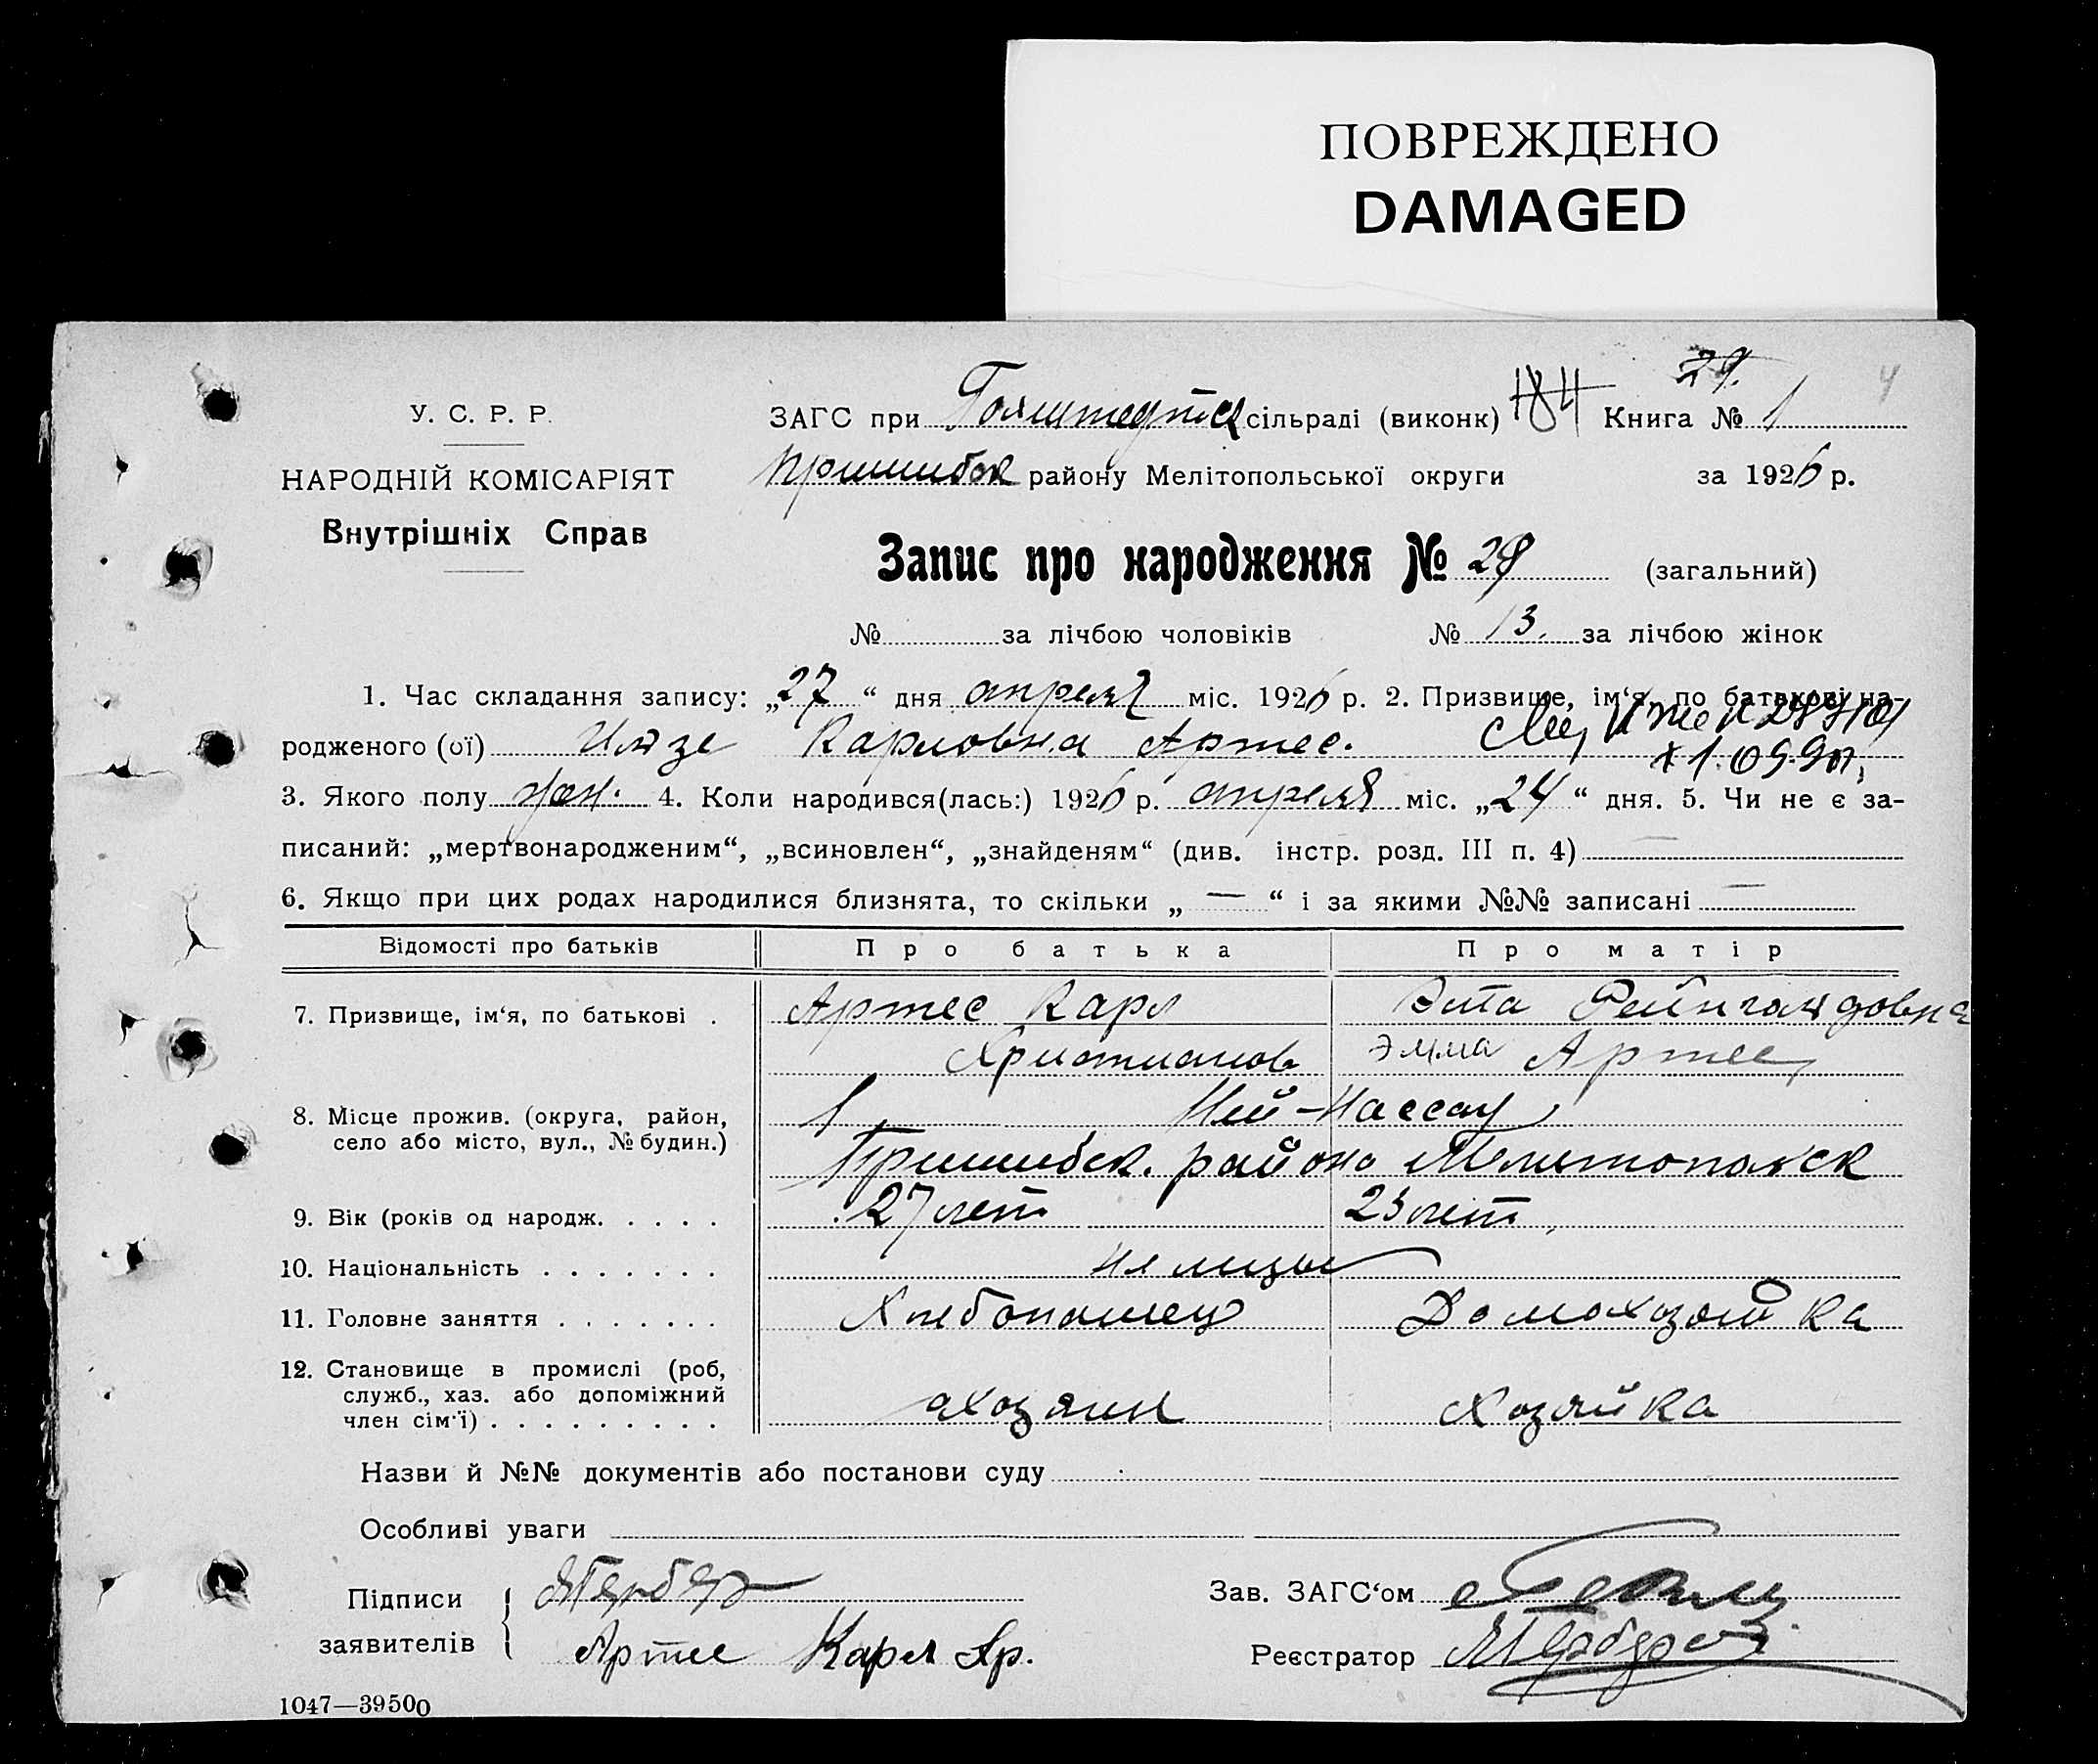 ПОВРЕЖДЕНО
DAMAGED
29.
4
У. С. Р. Р. ЗАГС при сільраді (виконк) 184 Книга № 1
НАРОДНІЙ КОМІСАРІЯТ Пришибск району Мелітопольської округи за 1926 р.
Внутрішніх Справ
Запис про народження № 29 (загальний)
№ за лічбою чоловіків № 13. за лічбою жінок
1. Час складання запису: „27“ дня апреля міс. 1926 р. 2. Призвище, ім‘я, по батькові на-
родженого (ої) Ильзе Карловна Артес.
3. Якого полу жен. 4. Коли народився(лась:) 1926 р. апреля міс. „24“ дня. 5. Чи не є за-
писаний: „мертвонародженим“, „всиновлен“, „знайденям“ (див. інстр. розд. III п. 4) —
6. Якщо при цих родах народилися близнята, то скільки „ — “ і за якими №№ записані —
Відомості про батьків Про батька Про матір
7. Призвище, ім‘я, по батькові . Артес Карл Рейнгольдовна
Християнов Эмма Артес
8. Місце прожив. (округа, район, Ней-Нассау
село або місто, вул., № будин.) Пришибск. района Мелитопольск
9. Вік (років од народж. . . . . 27 лет 23 лет,
10. Національність . . . . . . . немцы
11. Головне заняття . . . . . . . Хлебопашец Домохозяйка
12. Становище в промислі (роб,
служб., хаз. або допоміжний
член сім‘ї) . . . . . . . . . хозяин Хозяйка
Назви й №№ документів або постанови суду
Особливі уваги
Підписи
заявителів Артес Карл Хр.
Зав. ЗАГС‘ом
Реєстратор
1047—39500